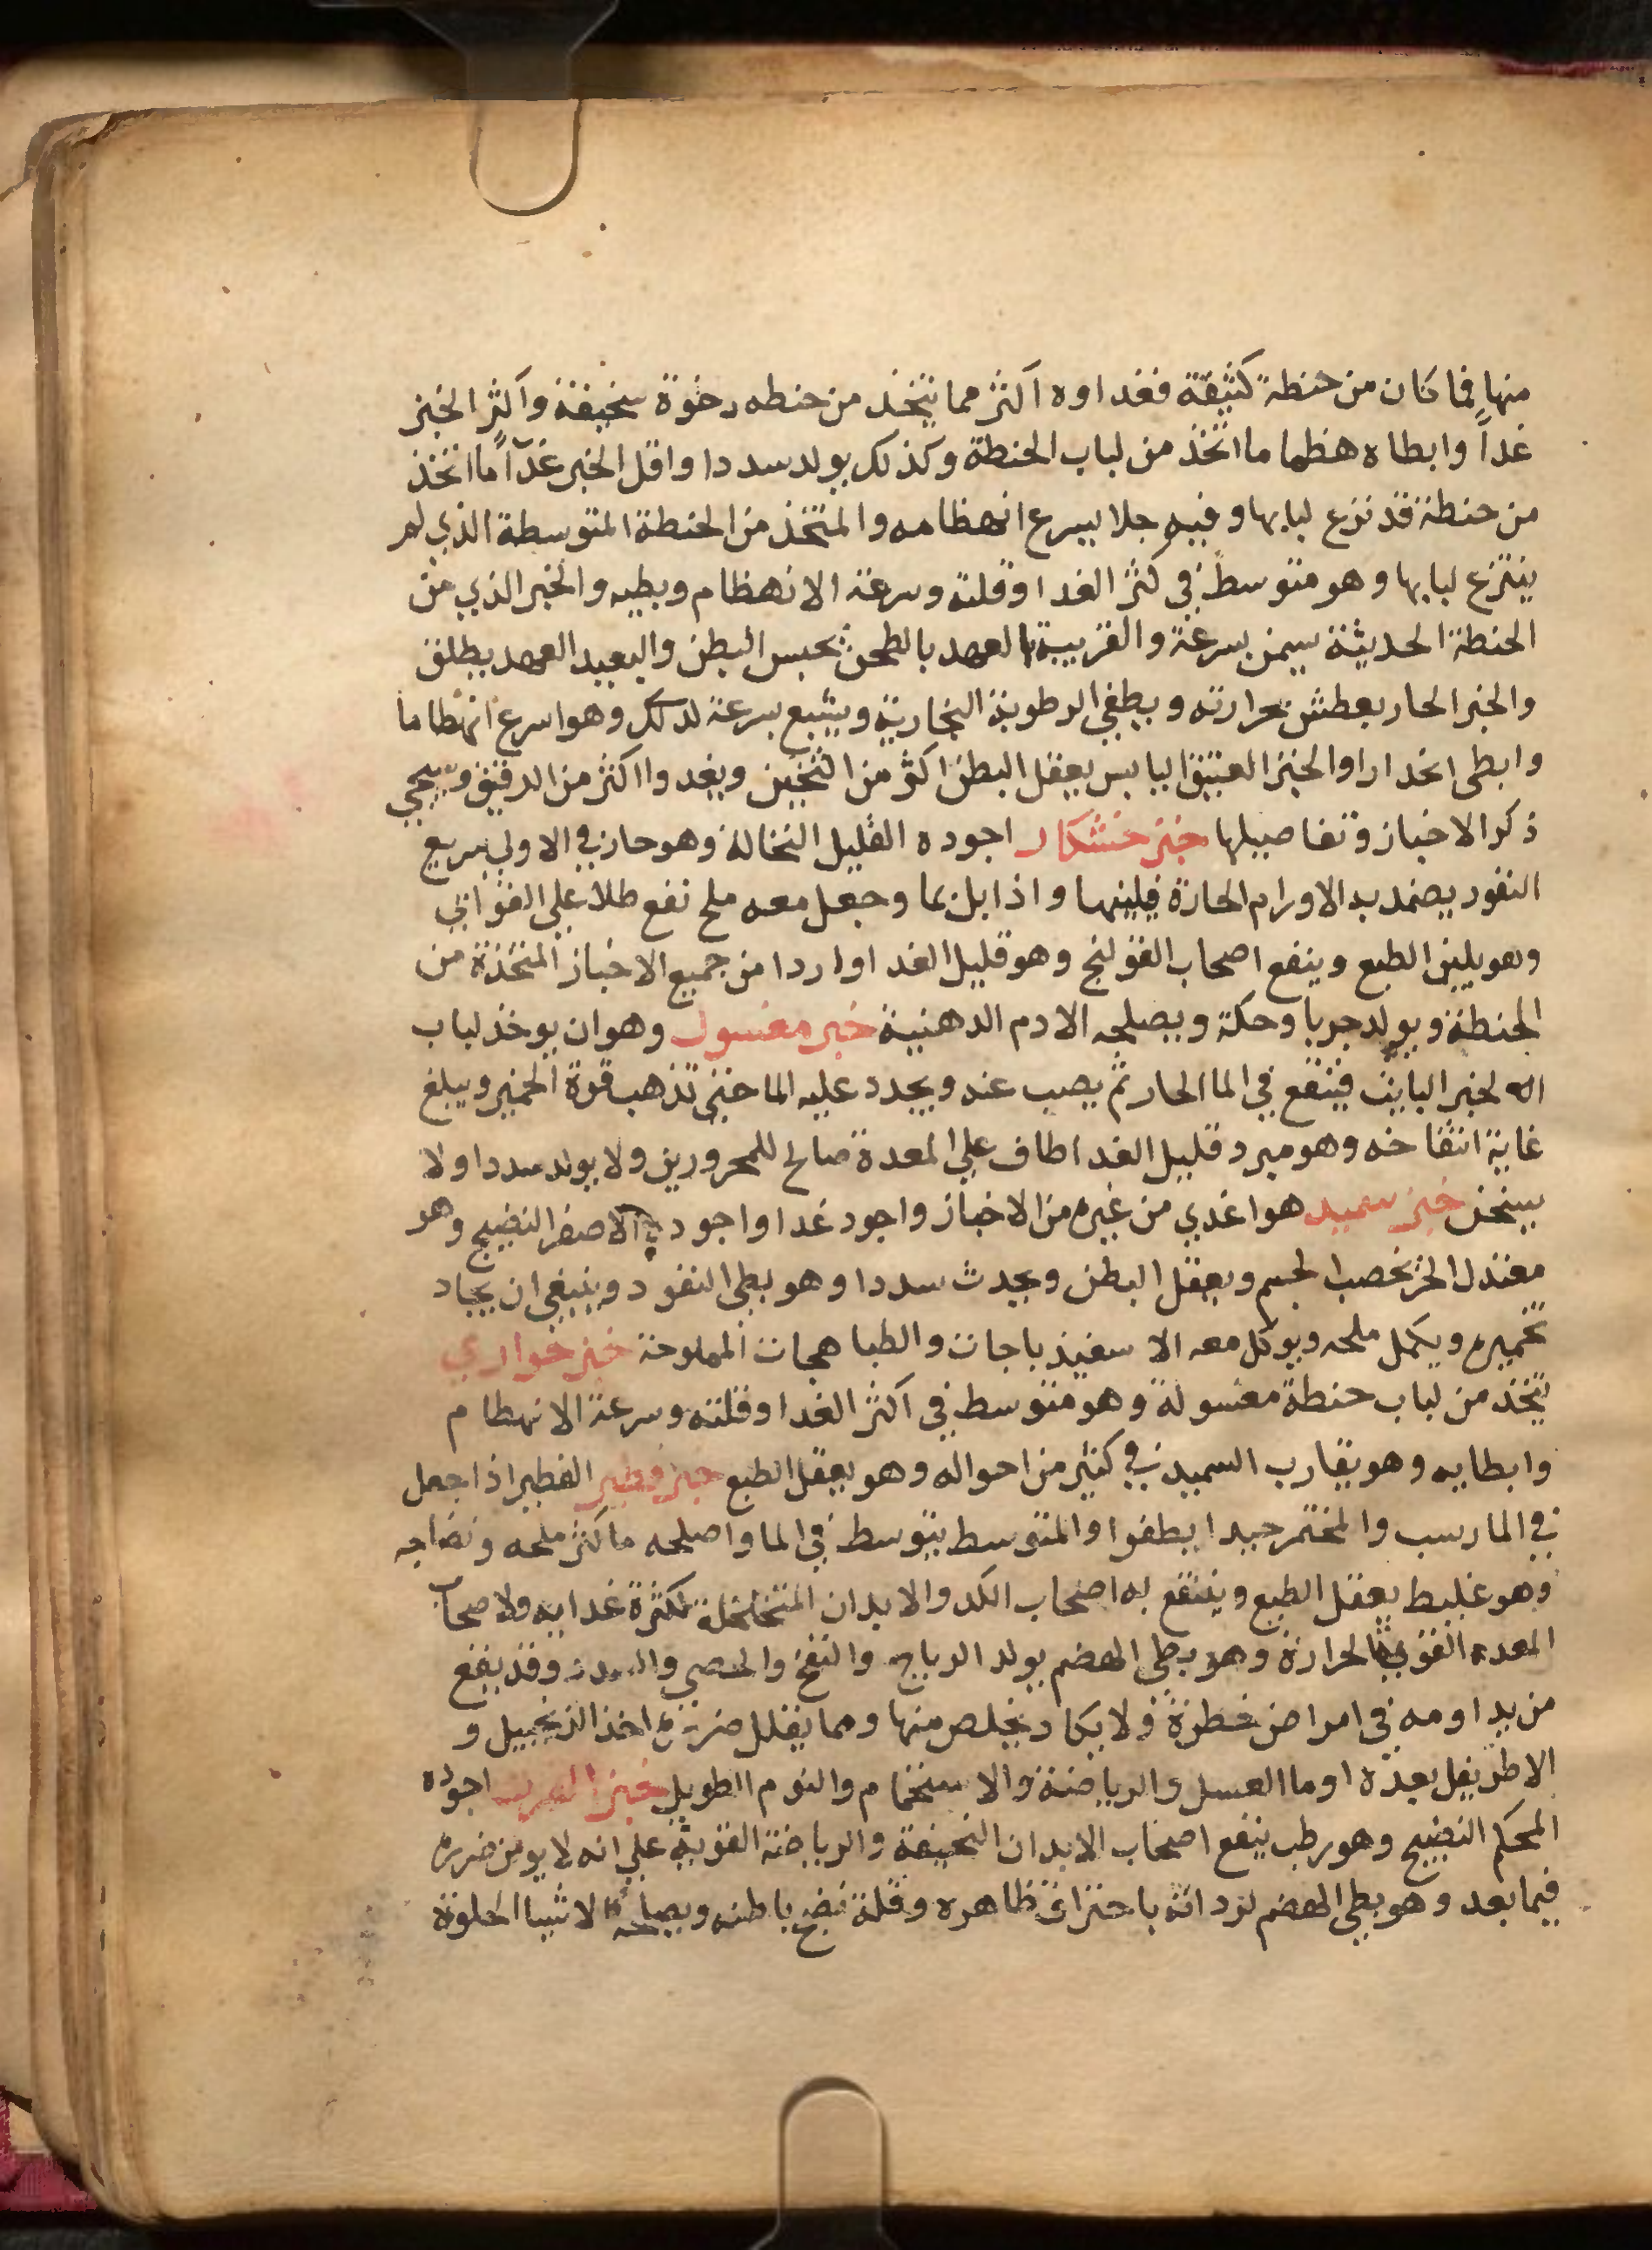 منها فما كان من حنطة كثيفة فغداوه اكثر مما يتخذ من حنطه رخوة سخيفة واكثر الخبز
غداً وابطاه هظما ما اتخذ من لباب الحنطة وكذلك يولد سددا واقل الخبز غدآً ما اتخذ
من حنطة قد نزع لبابها وفيه جلا يسرع انهظامه والمتخذ من الحنطة المتوسطة الذي لم
ينتزع لبابها وهو متوسط في كثر الغدا وقلته وسرعة الانهظام وبطيه والخبر الذي من
الحنطة الحديثة يسمن بسرعة والقريبة العهد بالطحن يحبس البطن والبعيد العهد يطلق
والخبر الحار يعطش بحرارته ويطفي الرطوبة البخارية ويشبع بسرعة لدلك وهو اسرع انهظاما
وابطى انحدارا والخبز العتيق اليابس يعقل البطن اكثر من الثخين ويغدوا اكثر من الرقيق وسيجي
ذكر الاخباز وتفاصيلها خبز خشكار اجوده القليل النخالة وهو حار في الاولي سريع
النفود يضمد به الاورام الحارة فيلينها واذا بل بما وجعل معه ملح نفع طلا علي القوابي
وهو يلين الطبع وينفع اصحاب القولنج وهو قليل الغدا واردا من جميع الاخباز المتخذة من
الحنطة ويولد جربا وحكة ويصلحه الادم الدهنية خبر مغسول وهو ان يوخذ لباب
الخبر البايت فينقع في الما الحار ثم يصب عنه ويجدد عليه الما حتي تذهب قوة الخمير ويبلغ
غاية انتفاخه وهو مبرد قليل الغدا طاف علي المعدة صالح للمحرورين ولا يولد سددا ولا
يسخن خبز سميد هو اغدي من غيره من الاخباز واجود غدا واجوده الاصفر النضيج وهو
معتدل الحر يخصب الجسم ويعقل البطن ويحدث سددا وهو بطي النفود وينبغي ان يجاد
تخميره ويكمل ملحه ويوكل معه الاسفيذباجات والطباهجات المملوحة خبز حواري
يتخذ من لباب حنطة مغسولة وهو متوسط في اكثر الغدا وقلته وسرعة الانهظام
وابطايه وهو يقارب السميد في كثير من احواله وهو يعقل الطبع خبز فطير الفطير اذا جعل
في الما رسب والمختمر جيدا يطفوا والمتوسط يتوسط في الما واصلحه ما كثر ملحه ونضاجه
وهو غليظ يعقل الطبع وينتفع به اصحاب الكد والابدان المتخلخلة لكثرة غدايه ولاصحاب
المعده القوية الحرارة وهو بطي الهضم يولد الرياح والنفخ والحصي والسدد وقد يقع
من يداومه في امراض خطرة ولا يكاد يخلص منها ومما يقلل ضرره اخذ الزنجبيل و
الاطريفل بعده او ما العسل والرياضة والاستحمام والنوم الطويل خبز الفرن اجوده
المحكم النضيج وهو رطب ينفع اصحاب الابدان النحيفة والرياضة القوية علي انه لا يومن ضرره
فيما بعد وهو بطي الهضم لرداته باحتراق ظاهره وقلة نضج باطنه ويصلحه الاشيا الحلوة